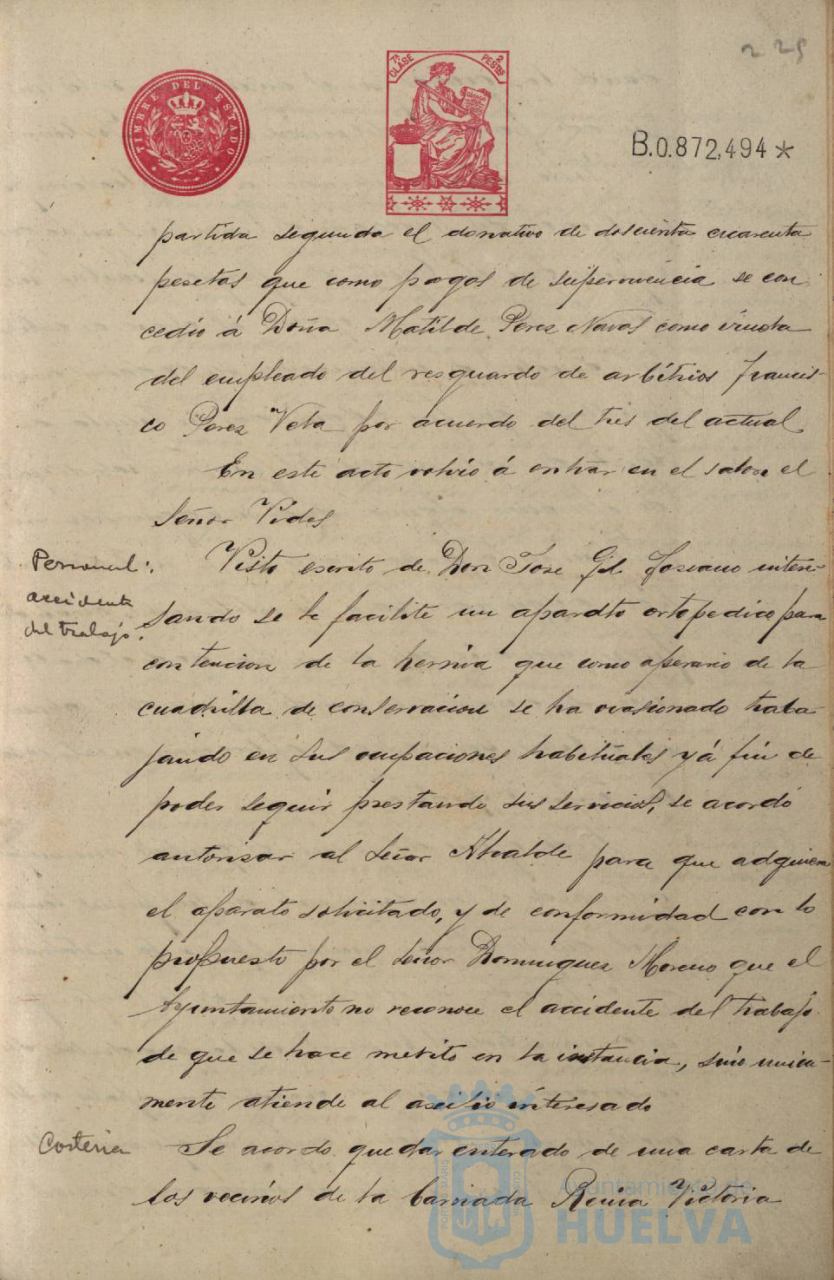 225
TIMBRE DEL ESTADO
7ª CLASE 2 PESETAS
B.0.872,494 *
partida segunda el donativo de doscienta cuarenta
pesetas que como pagas de supervivencia se con
cedió á Doña Matilde Perez Navas como viuda
del empleado del resguardo de arbitrios Francis-
co Perez Vela por acuerdo del tres del actual
En este acto volvió á entrar en el salon el
Señor Vides
Personal:
accidente
del trabajo.
Visto escrito de Don Jose Gil intere-
sando se le facilite un aparato ortopedico para
contencion de la hernia que como operario de la
cuadrilla de conservacion se ha ocasionado traba-
jando en sus ocupaciones habituales y á fin de
poder seguir prestando sus servicios, se acordó
autorizar al Señor Alcalde para que adquiera
el aparato solicitado, y de conformidad con lo
propuesto por el Señor Dominguez Moreno que el
Ayuntamiento no reconoce el accidente del trabajo
de que se hace merito en la instancia, sino unica-
mente atiende al auxilio interesado
Cortesia
Se acordo quedar enterado de una carta de
los vecinos de la barriada Reina Victoria
Ayuntamiento de
HUELVA